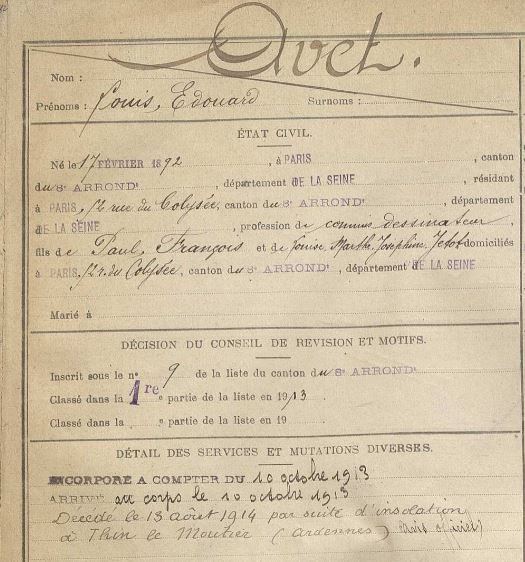 Avet.
Nom :
Prénoms : Louis, Edouard Surnoms :
ÉTAT CIVIL.
Né le 17 FÉVRIER 1892, à PARIS, canton
du 8e ARRONDt, département DE LA SEINE, résidant
à PARIS, 12 rue du Colysée, canton du 8e ARRONDt, département
DE LA SEINE, profession de commis dessinateur,
fils de Paul, François et de Louise, Marthe, Joséphine, Jetot domiciliés
à PARIS, 12 r. du Colysée, canton du 8e ARRONDt, département DE LA SEINE
Marié à
DÉCISION DU CONSEIL DE REVISION ET MOTIFS.
Inscrit sous le no 9 de la liste du canton du 8e ARRONDt
Classé dans la 1re e partie de la liste en 1913.
Classé dans la e partie de la liste en 19
DÉTAIL DES SERVICES ET MUTATIONS DIVERSES.
INCORPORÉ A COMPTER DU 10 octobre 1913
ARRIVÉ au corps le 10 octobre 1913
Décédé le 13 Août 1914 par suite d'insolation
à Thin le Moutier (Ardennes) (avis officiel)